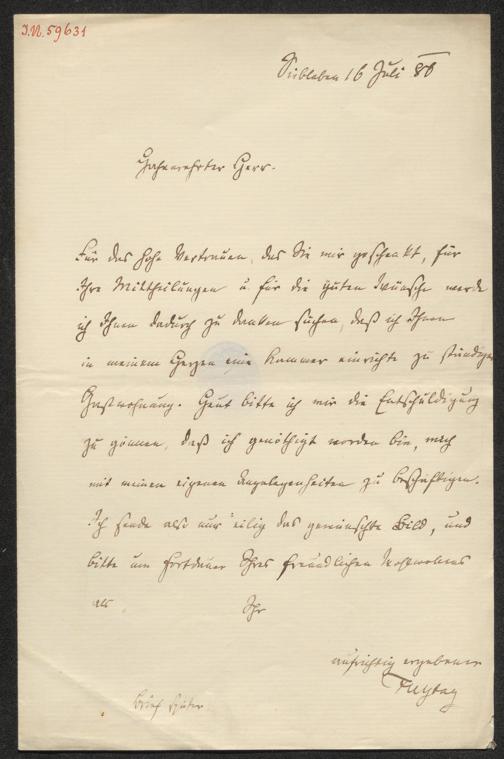 I.N. 59631
Siebleben 16 Juli 86
Hochverehrter Herr.
Für das hohe Vertrauen, das Sie mir geschenkt, für
Ihre Mittheilungen u. für die guten Wünsche werde
ich Ihnen dadurch zu danken suchen, daß ich Ihnen
in meinem Herzen eine Kammer einrichte zu ständiger
Gastwohnung. Heut bitte ich mir die Entschuldigung
zu gönnen, daß ich genöthigt worden bin, mich
mit meinen eigenen Angelegenheiten zu beschäftigen.
Ich sende also nur eilig das gewünschte Bild, und
bitte um Fortdauer Ihres freundlichen Wohlwollens
als
Ihr
aufrichtig ergebener
Freytag
Brief später